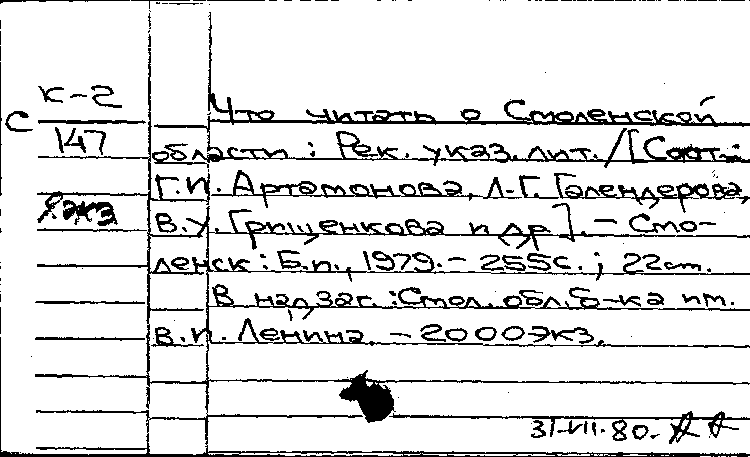 К-2
С
147
Что читать о Смоленской
области : Рек. указ. лит. / [Сост.:
Г.П. Артамонова, Л.Г. Галендерова,
экз
В.У. Грищенкова и др]. – Смо-
ленск : Б.и., 1979. – 255с. ; 22см.
В надзаг. : Смол. обл. б-ка им.
В.И. Ленина. – 2000экз.
31-VII-80.